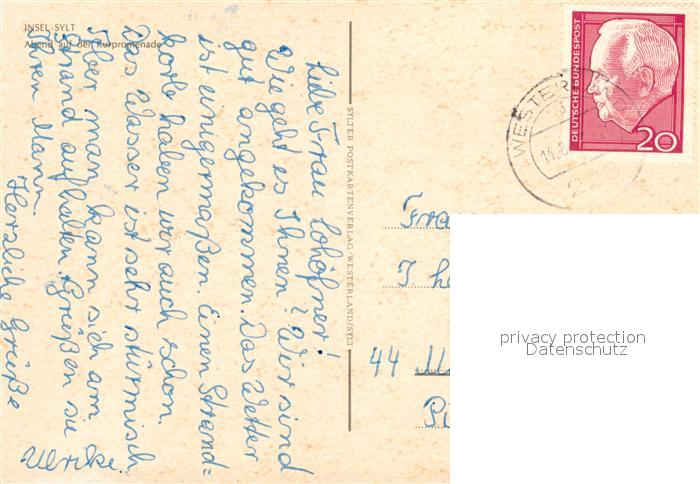 INSEL-SYLT
Abend auf den Kurpromenade
Liebe Frau Lohöfner!
Wie geht es Ihnen? Wir sind
gut angekommen. Das Wetter
ist einigermaßen. Einen Strand=
korb haben wir auch schon.
Das Wasser ist sehr stürmisch
Aber man kann sich am
Strand aufhalten. Grüßen sie
Ihren Mann.
Herzliche Grüße
Ulrike.
SYLTER POSTKARTENVERLAG-WESTERLAND/SYLT
DEUTSCHE BUNDESPOST
20
WESTER
Frau
44
privacy protection
Datenschutz